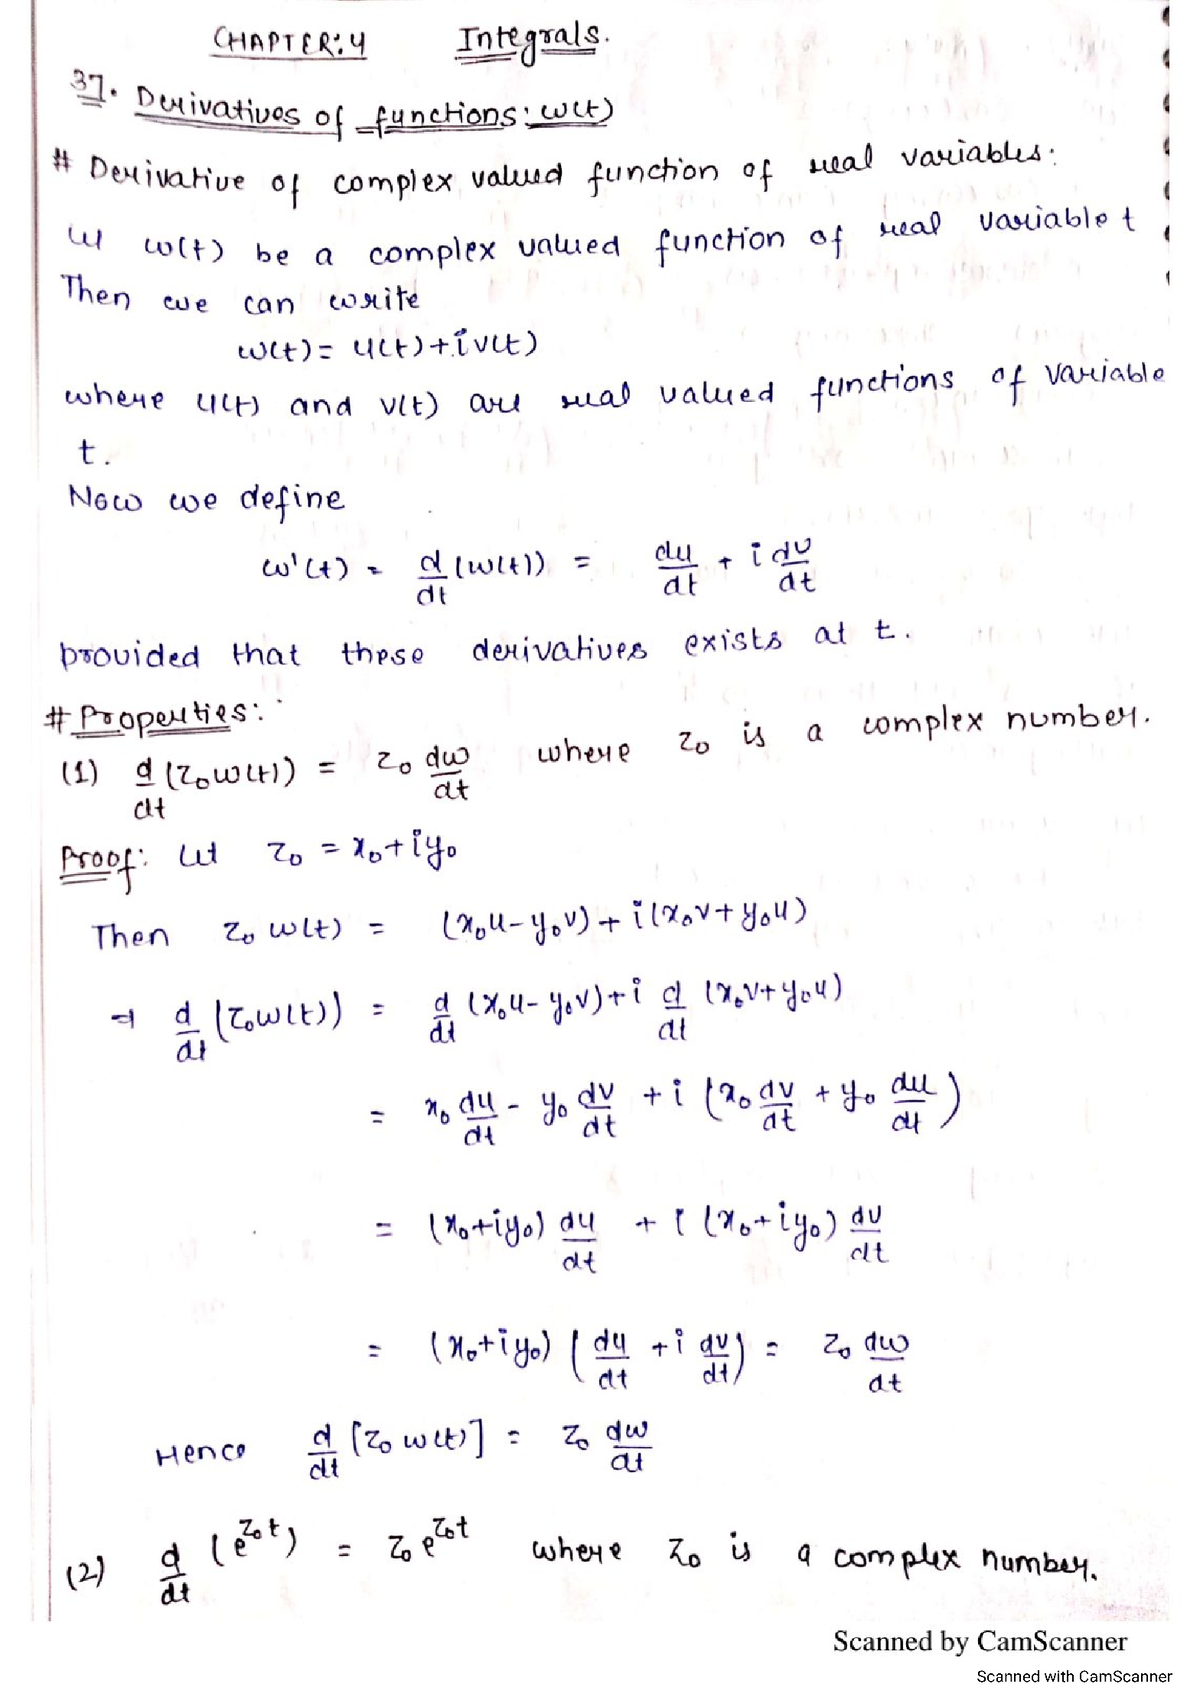 CHAPTER: 4 Integrals.
37. Derivatives of functions: w(t)
# Derivative of complex valued function of real variables:
Let w(t) be a complex valued function of real variable t
Then we can write
w(t) = u(t) + i v(t)
where u(t) and v(t) are real valued functions of variable
t.
Now we define
w'(t) = d/dt (w(t)) = du/dt + i dv/dt
provided that these derivatives exists at t.
# Properties:
(1) d/dt (z₀w(t)) = z₀ dw/dt where z₀ is a complex number.
Proof: Let z₀ = x₀ + iy₀
Then z₀ w(t) = (x₀u - y₀v) + i(x₀v + y₀u)
⇒ d/dt (z₀w(t)) = d/dt (x₀u - y₀v) + i d/dt (x₀v + y₀u)
= x₀ du/dt - y₀ dv/dt + i (x₀ dv/dt + y₀ du/dt)
= (x₀+iy₀) du/dt + i (x₀+iy₀) dv/dt
= (x₀+iy₀) (du/dt + i dv/dt) = z₀ dw/dt
Hence d/dt [z₀ w(t)] = z₀ dw/dt
(2) d/dt (e^{z₀t}) = z₀ e^{z₀t} where z₀ is a complex number.
Scanned by CamScanner
Scanned with CamScanner